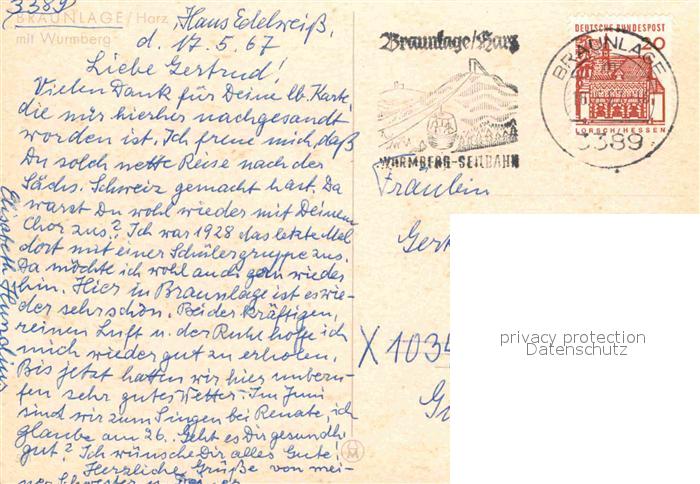 3389
BRAUNLAGE/Harz
mit Wurmberg
„Haus Edelweiß“
d. 17.5.67
Liebe Gertrud!
Vielen Dank für Deine lb. Karte,
die mir hierher nachgesandt
worden ist. Ich freue mich, daß
Du solch nette Reise nach der
Sächs. Schweiz gemacht hast. Da
warst Du wohl wieder mit Deinem
Chor zus.? Ich war 1928 das letzte Mal
dort mit einer Schülergruppe zus.
Da möchte ich wohl auch gern wieder
hin. Hier in Braunlage ist es wie-
der sehr schön. Bei der kräftigen,
reinen Luft u. der Ruhe hoffe ich
mich wieder gut zu erholen.
Bis jetzt hatten wir hier unberu-
fen sehr gutes Wetter. Im Juni
sind wir zum Singen bei Renate, ich
glaube am 26. Geht es Dir gesundh.
gut? Ich wünsche Dir alles Gute!
Herzliche Grüße von mei-
ner Schwester u.
Elisabeth
Braunlage/Harz
WURMBERG-SEILBAHN
DEUTSCHE BUNDESPOST
20
LORSCH/HESSEN
BRAUNLAGE
3389
Fräulein
Gert
X 1034
privacy protection
Datenschutz